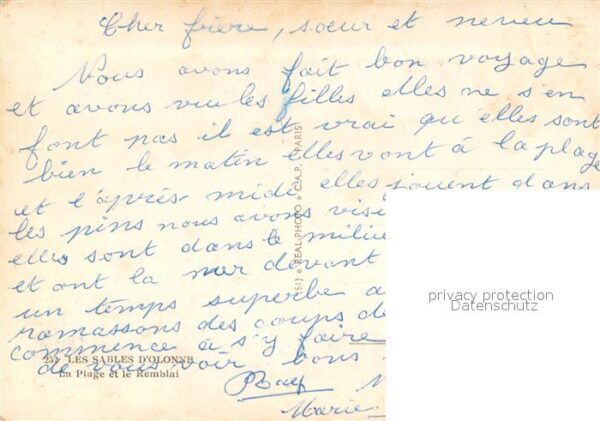 Cher frère, sœur et neveu
Nous avons fait bon voyage
et avons vu les filles elles ne s'en
font pas il est vrai qu'elles sont
bien le matin elles vont à la plage
et l'après midi elles jouent dans
les pins nous avons visi
elles sont dans le milie
et ont la mer devant
un temps superbe a
ramassons des coups de
commence à s'y faire
de vous voir bons
Marie
251 LES SABLES D'OLONNE
La Plage et le Remblai
(151) « REAL-PHOTO » C.A.P. PARIS
privacy protection
Datenschutz